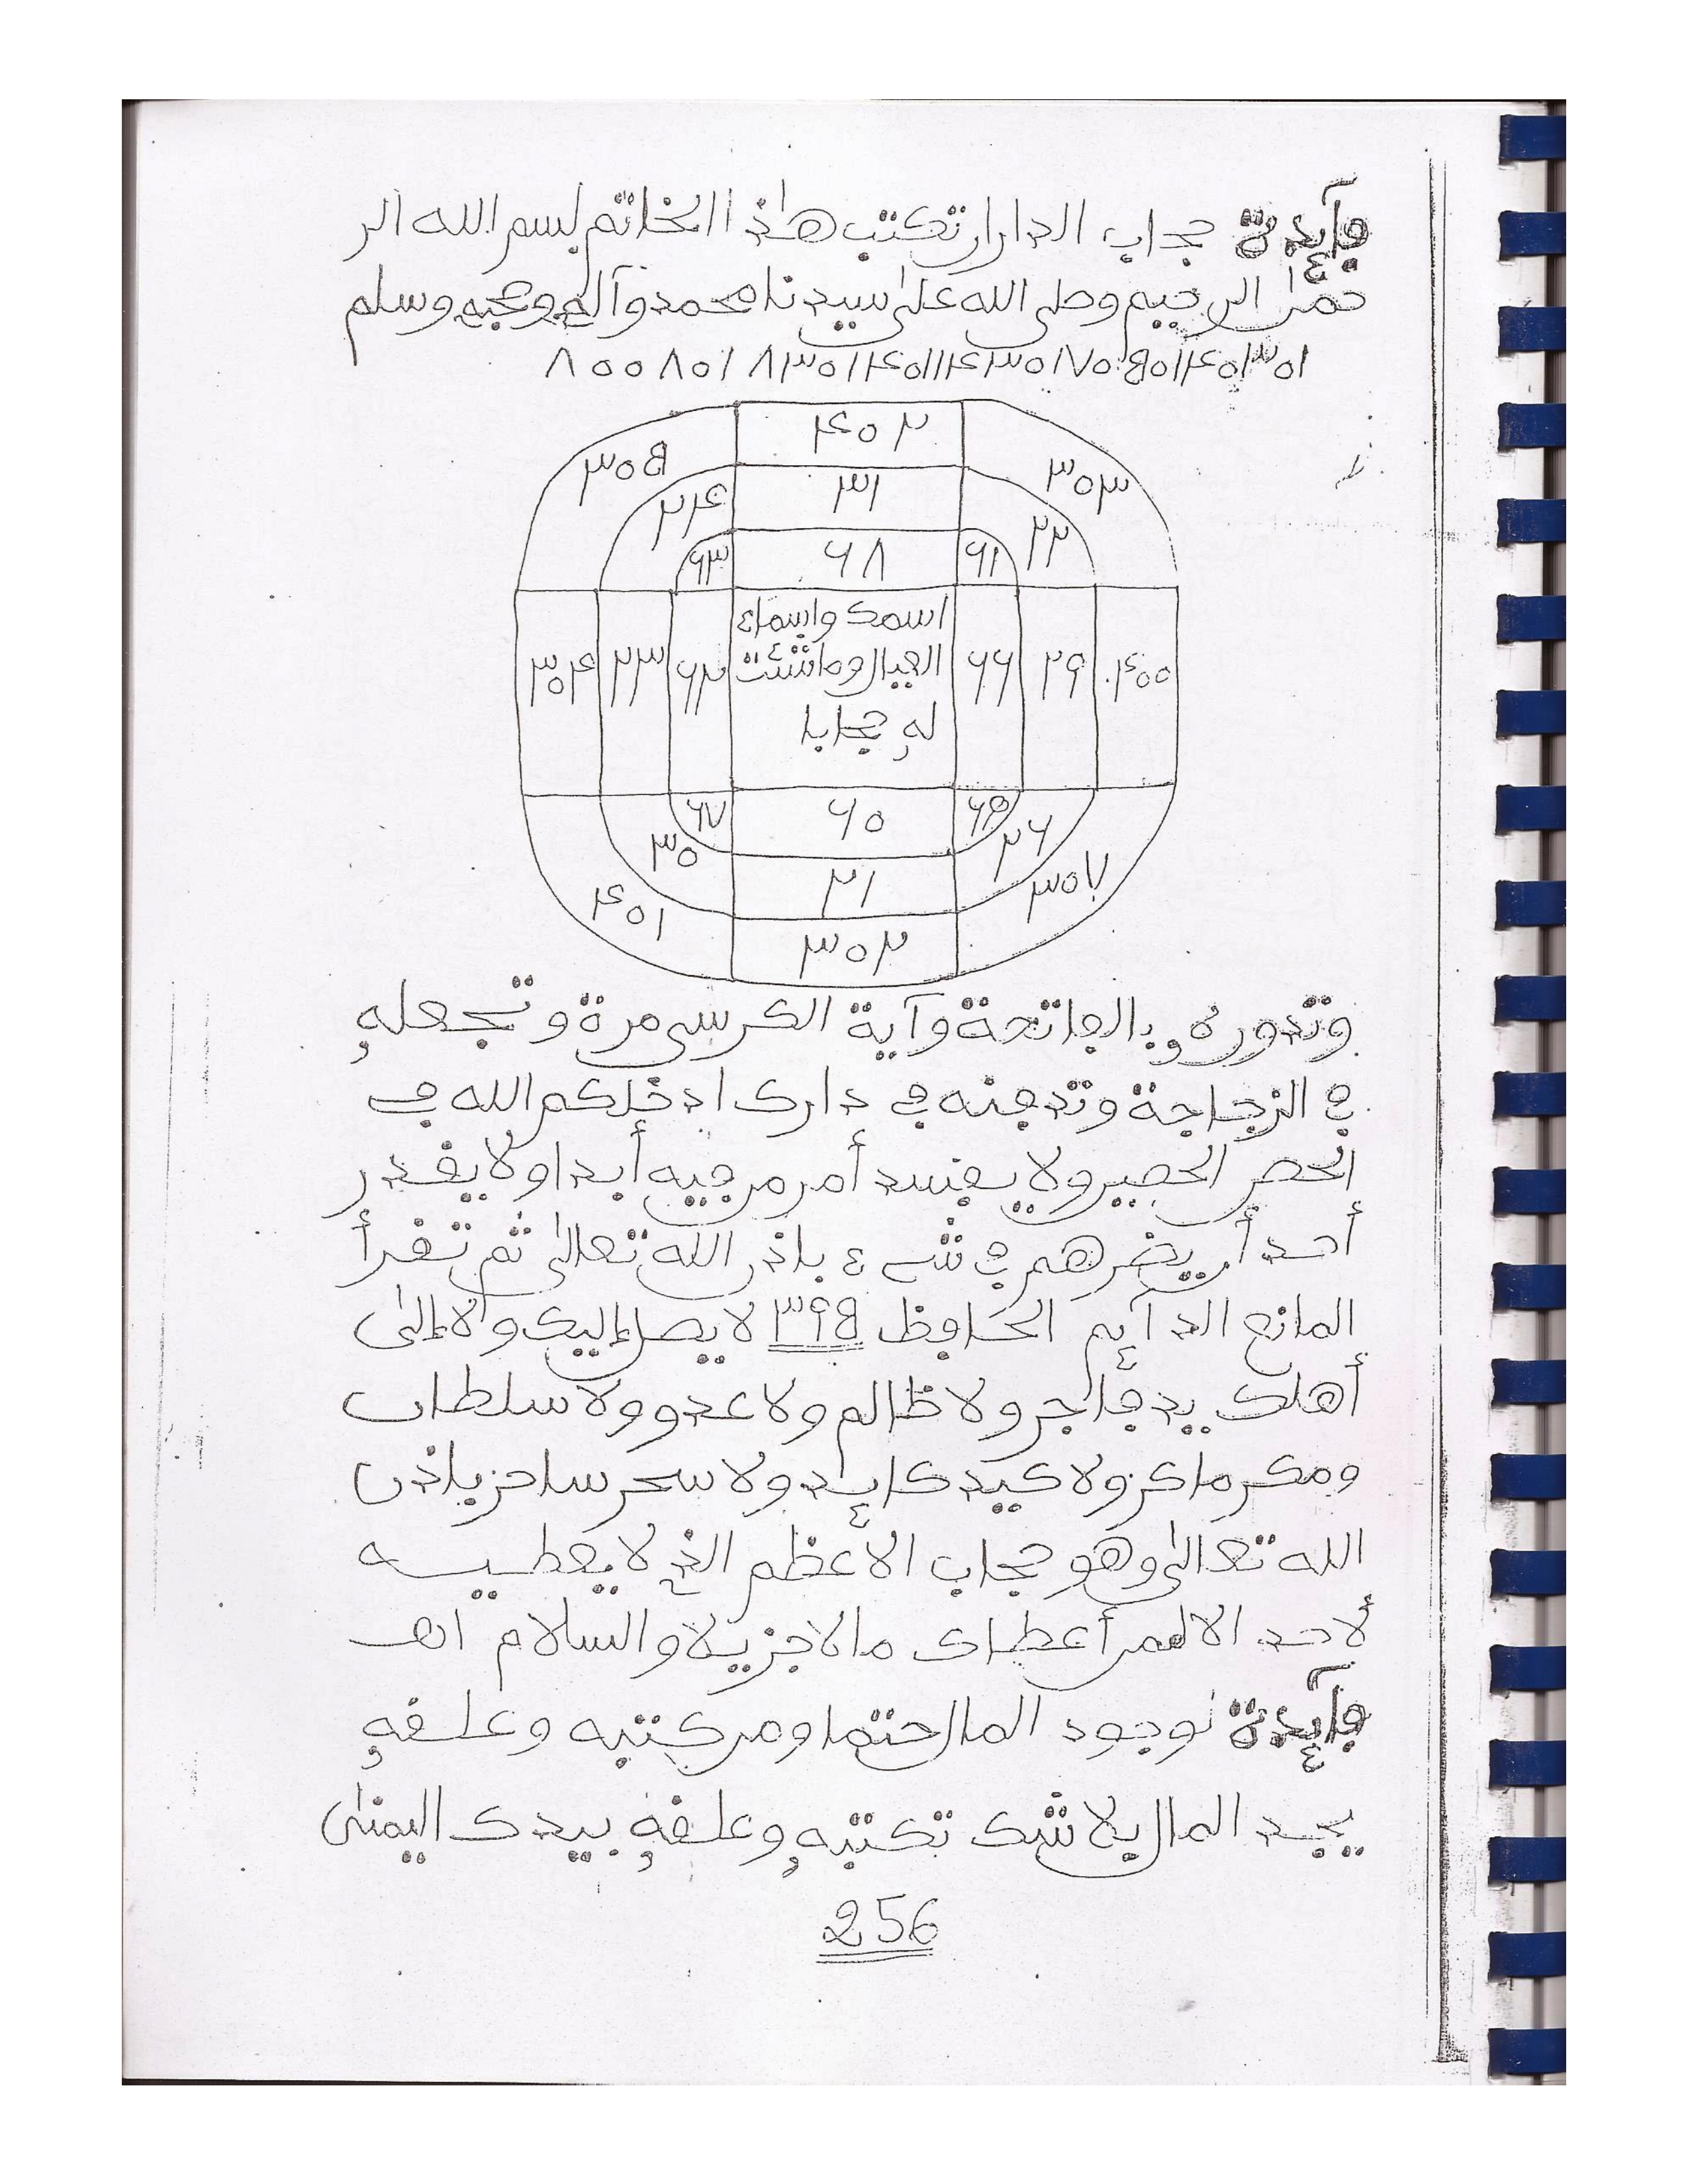 فآئدة حجاب الدار ان تكتب هٰذا الخاتم بسم الله الر
حمٰن الرحيم وصلى الله علىٰ سيدنا محمد وآله وصحبه وسلم
٣٠٢ ٤٠٢
٣٠٥ ٣٠٣
٢٤ ٣١ ٢٢
٦٣ ٦٨ ٦١
اسمك واسماء
٣٠٤ ٢٣ ٦٢ العيال وما شئت ٦٦ ٢٩ ٤٠٠
له حجابا
٦٧ ٦٠ ٦٥
٣٠ ٢١ ٢٦
٤٠١ ٣٠٢ ٣٠٧
وتدوره بالفاتحة وآية الكرسي مرة وتجعله
في الزجاجة وتدفنه في دارك ادخلكم الله في
الحصن الحصين ولا يفسد أمر من فيه أبدا ولا يقدر
أحد أن يضرهم في شيء باذن الله تعالىٰ ثم تقرأ
المانع الدآئم الحافظ ٣٩٥ لا يصل إليك ولا إلىٰ
أهلك يد فاجر ولا ظالم ولا عدو ولا سلطان
ومكر ماكر ولا كيد كائد ولا سحر ساحر باذن
الله تعالىٰ وهو حجاب الأعظم الذي لا يعطيـه
لأحد الا لمن أعطاك مالا جزيلا والسلام اهـ
فآئدة لوجود المال حتما ومن كتبه وعلقه
يجد المال بلا شك تكتبه وعلقه بيدك اليمنىٰ
256